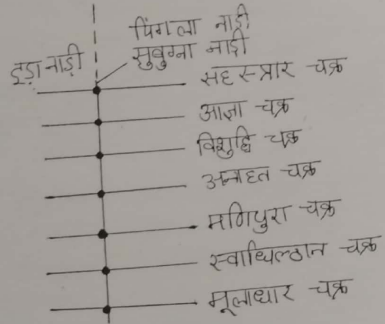 पिंगला नाड़ी
इड़ा नाड़ी
सुषुम्ना नाड़ी
सहस्त्रार चक्र
आज्ञा चक्र
विशुद्धि चक्र
अनाहत चक्र
मणिपुरा चक्र
स्वाधिल्ठान चक्र
मूलाधार चक्र